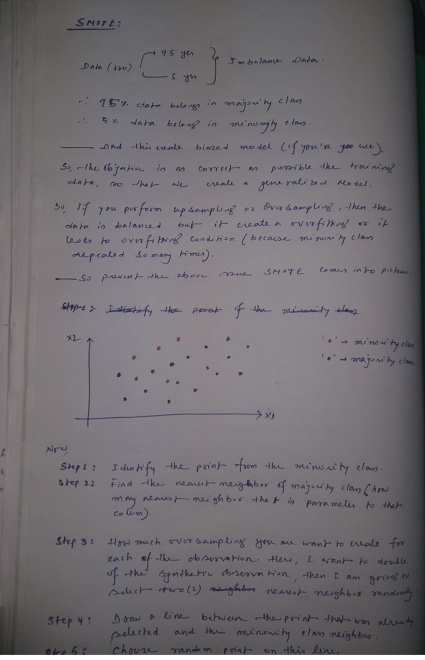 SMOTE:
Data (100) 95 yes
5 yes
Imbalance Data.
∴ 95% data belongs in majority class
∴ 5% data belong in minority class.
And this create biazed model (if you're you see).
So, the objative is as correct as possible the training
data, so that we create a generalized Model.
So, If you perform upsampling or Oversampling, then the
data is balanced but it create a overfitting or it
leads to overfitting condition (because minority class
repeated so many times).
So prevent the above issue SMOTE comes into picture
Step 1: Identify the point of the minority class
x2
'•' → minority class
'•' → majority class
x1
Now,
Step 1: Identify the point from the minority class.
Step 2: Find the nearest neighbor of majority class (how
may nearest neighbor the k is parameter to that
Step 3: How much oversampling you are want to create for
each of the observation. Here, I want to double
of the synthetic observation, then I am going to
select two(2) neighbor nearest neighbor randomly
Step 4: Draw a line between the point that was already
selected and the minority class neighbor.
Step 5: Choose random point on this line.